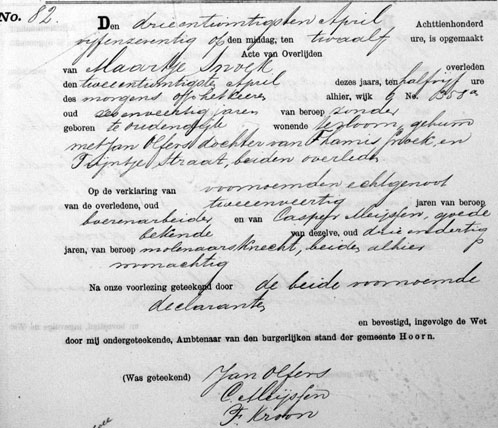 No. 82.
Den drieentwintigsten April Achttienhonderd
vijfenzeventig op den middag, ten twaalf ure, is opgemaakt
Acte van Overlijden
van Maartje Snoek overleden
den tweeentwintigste April dezes jaars, ten half vijf ure
des morgens op het Keere alhier, wijk 6 No. 358a
oud zevenveertig jaren van beroep zonder
geboren te oudendijk wonende te Hoorn, gehuwd
met Jan Olfers dochter van Thamis Snoek, en
Trijntje Straat, beiden overleden
Op de verklaring van voornoemden echtgenoot
van de overledene, oud tweeenveertig jaren van beroep
boerenarbeider en van Casper Meijsen, goede
bekende van dezelve, oud drieendertig
jaren, van beroep molenaarsknecht, beiden alhier
woonachtig
Na onze voorlezing geteekend door de beide voornoemde
declaranten
en bevestigd, ingevolge de Wet
door mij ondergeteekende, Ambtenaar van den burgerlijken stand der gemeente Hoorn.
(Was geteekend) Jan Olfers
C. Meijsen
F. Kroon